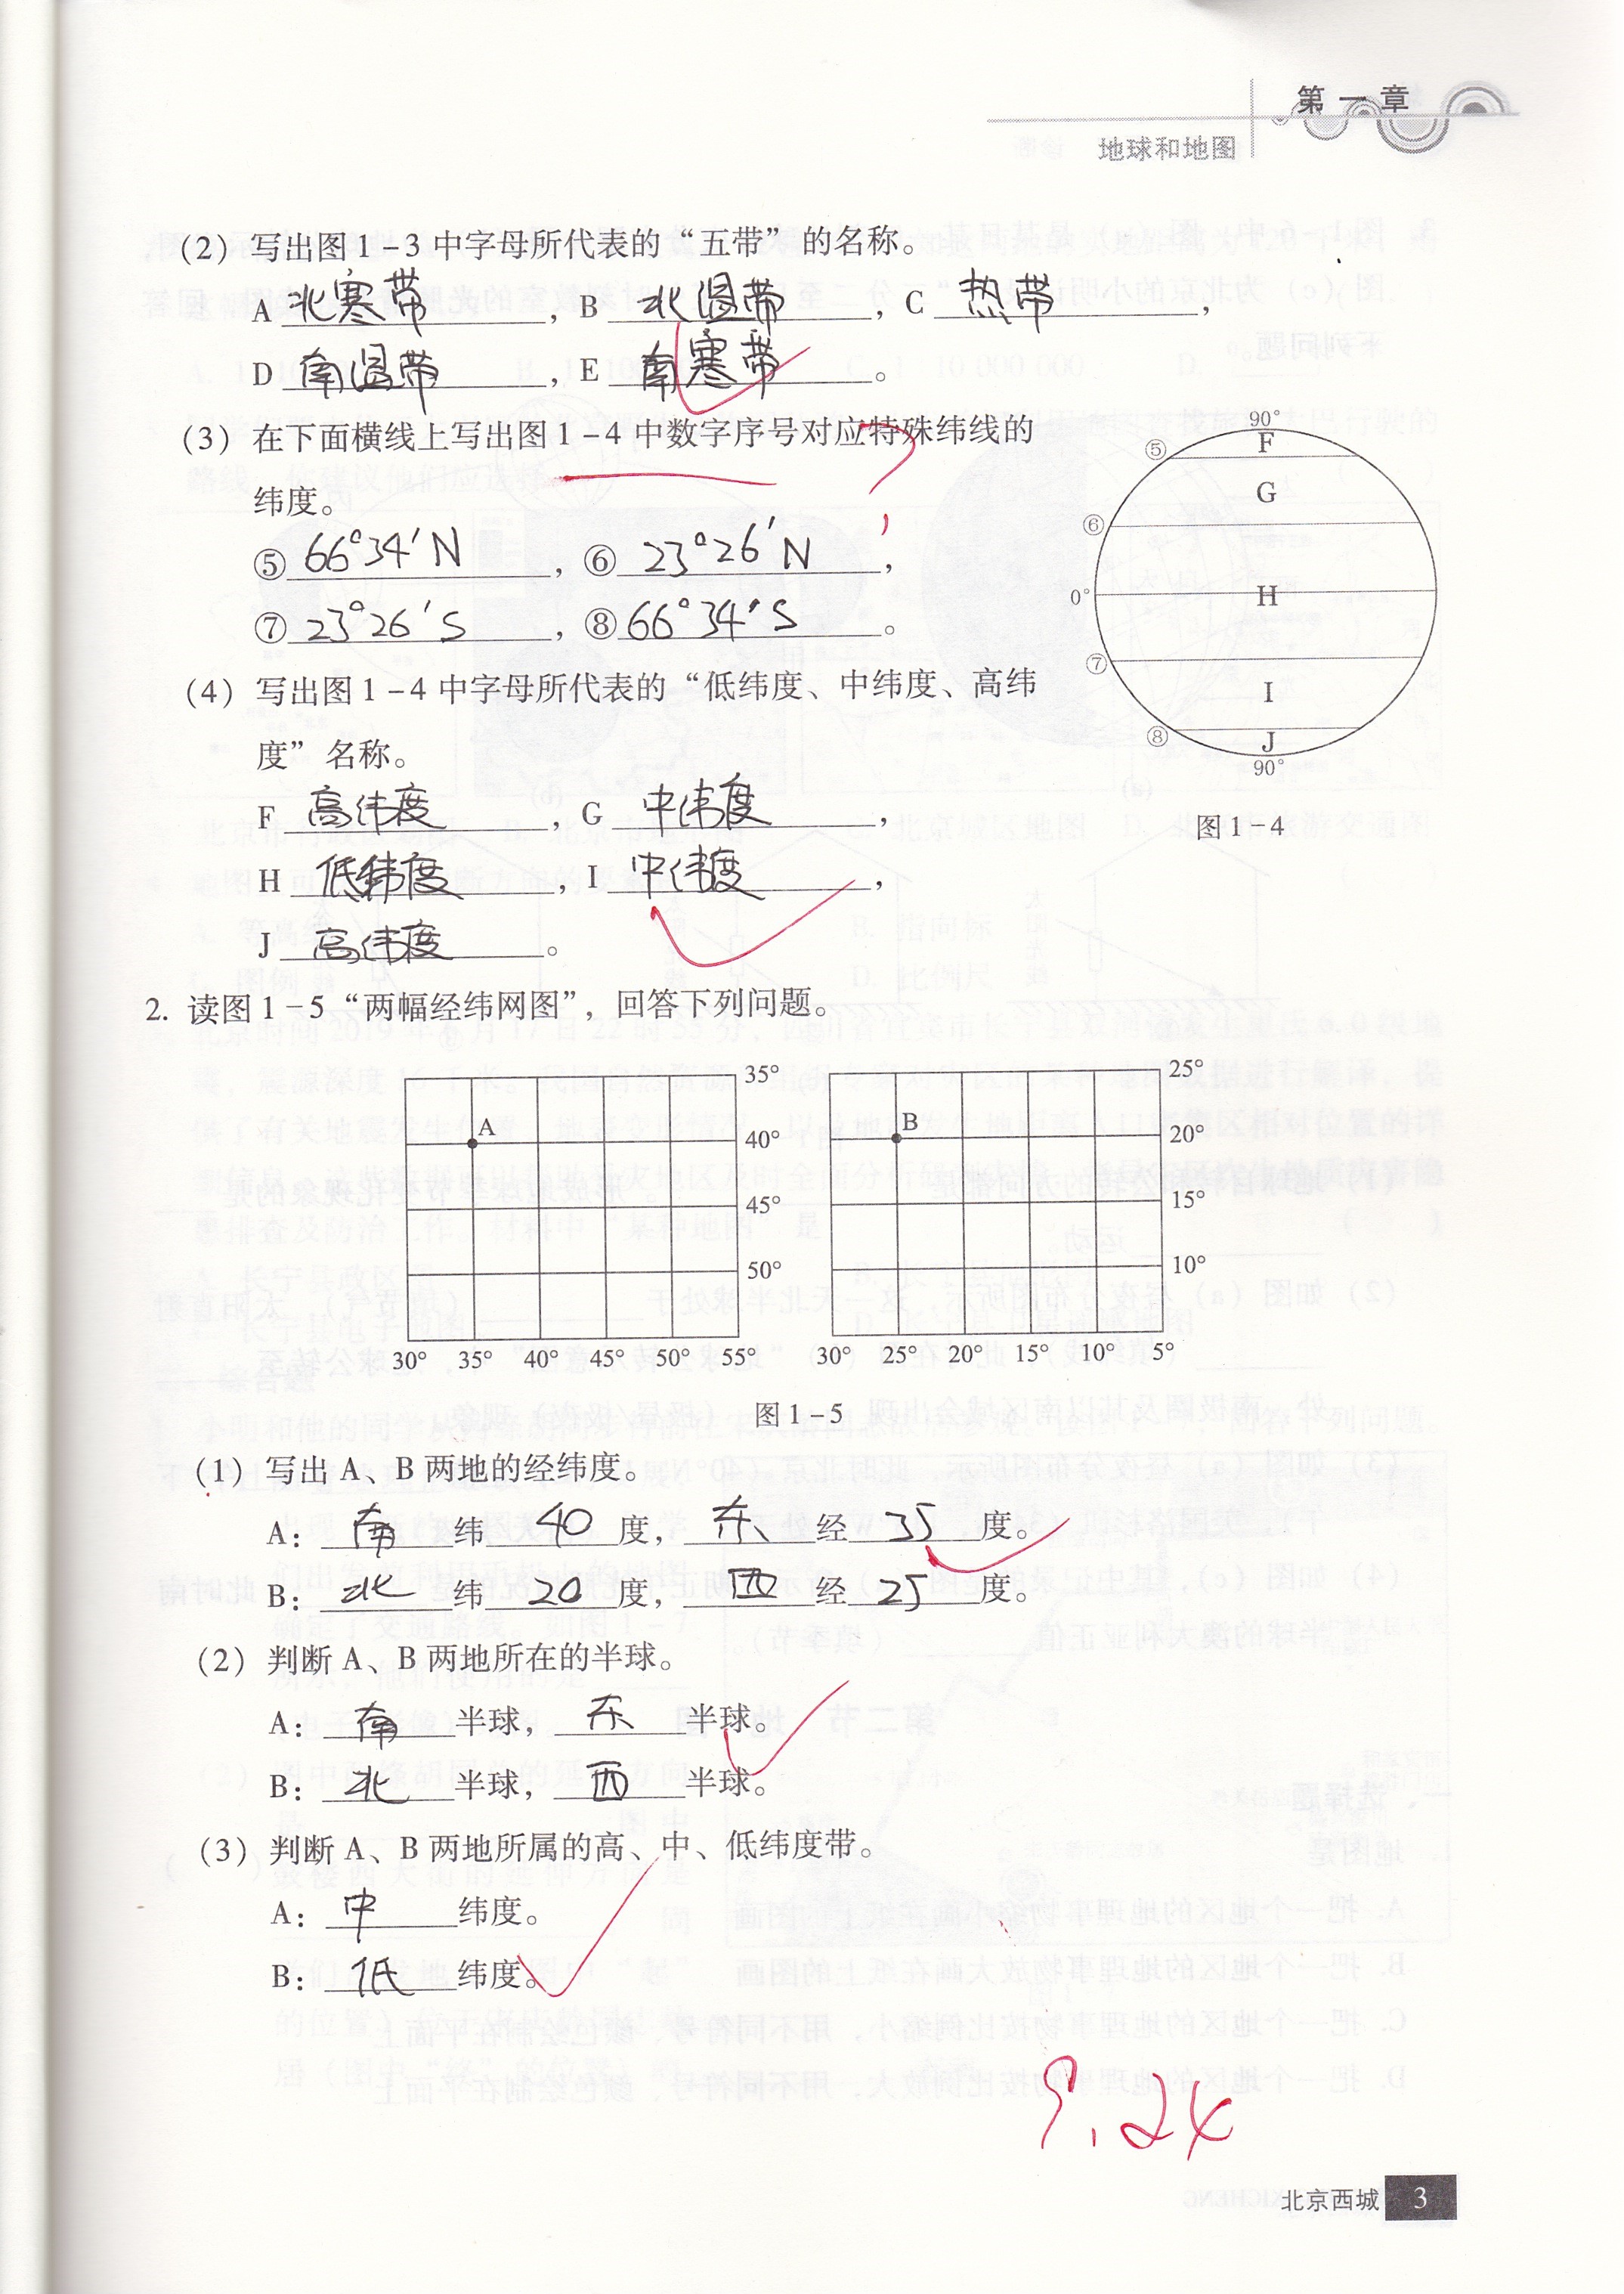 第一章
地球和地图
(2) 写出图1-3中字母所代表的“五带”的名称。
A 北寒带，B 北温带，C 热带，
D 南温带，E 南寒带。
(3) 在下面横线上写出图1-4中数字序号对应特殊纬线的
纬度。
⑤ 66°34′N，⑥ 23°26′N，
⑦ 23°26′S，⑧ 66°34′S。
90°
⑤ F
G
⑥
0° H
⑦
I
⑧ J
90°
图1-4
(4) 写出图1-4中字母所代表的“低纬度、中纬度、高纬
度”名称。
F 高纬度，G 中纬度，
H 低纬度，I 中纬度，
J 高纬度。
2. 读图1-5“两幅经纬网图”，回答下列问题。
A
35°
40°
45°
50°
30° 35° 40° 45° 50° 55°
B
25°
20°
15°
10°
30° 25° 20° 15° 10° 5°
图1-5
(1) 写出A、B两地的经纬度。
A：南纬40度，东经35度。
B：北纬20度，西经25度。
(2) 判断A、B两地所在的半球。
A：南半球，东半球。
B：北半球，西半球。
(3) 判断A、B两地所属的高、中、低纬度带。
A：中纬度。
B：低纬度。
9.24
北京西城 3